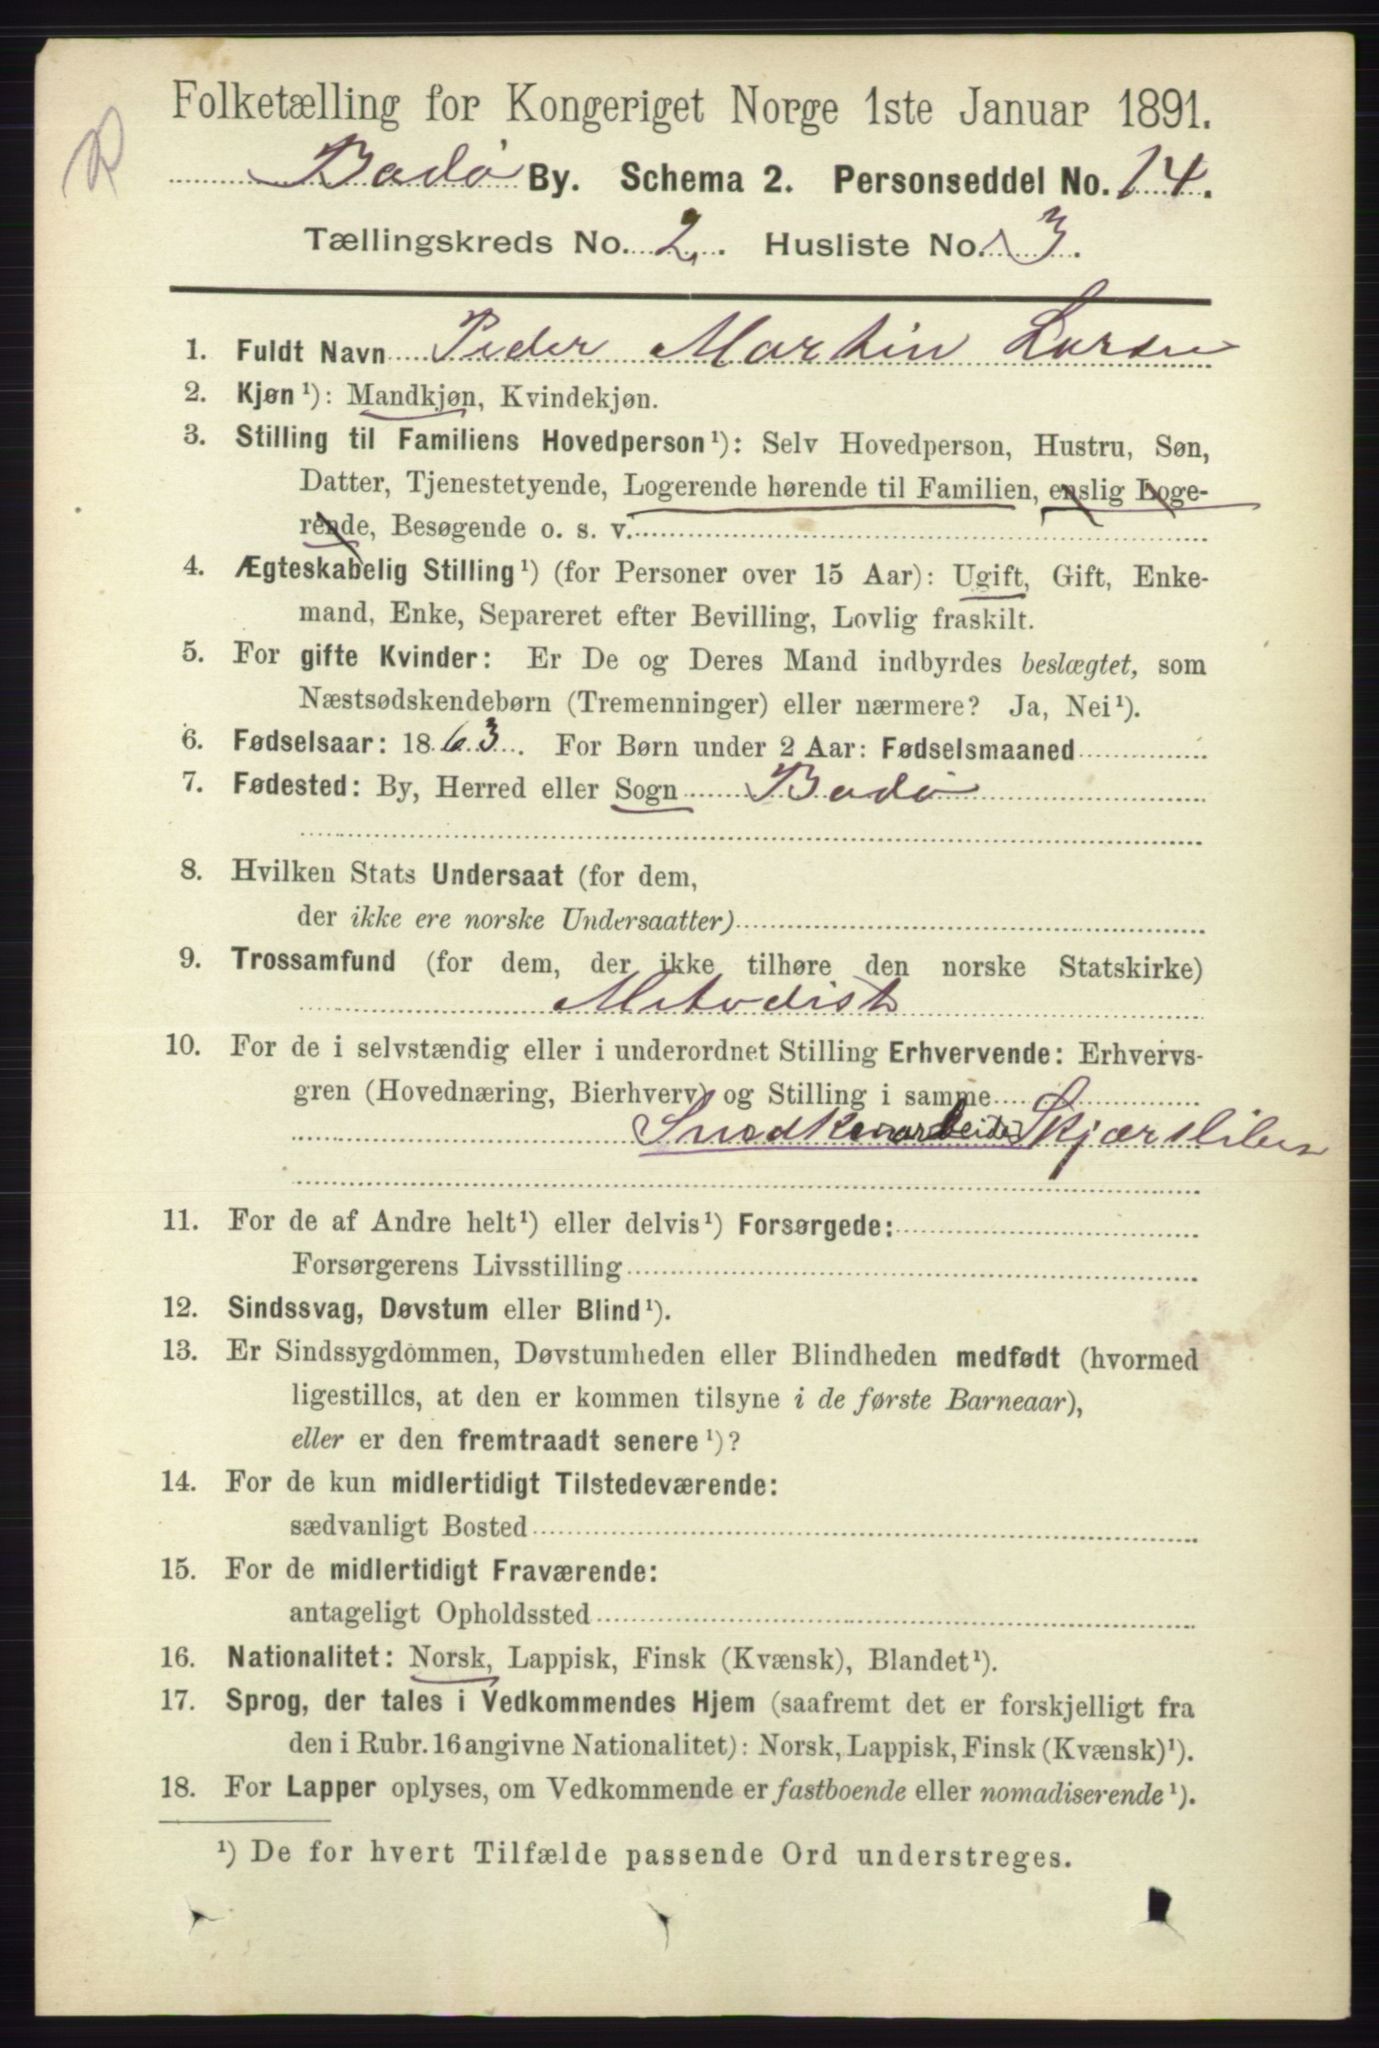 R
Folketælling for Kongeriget Norge 1ste Januar 1891.
Bodø By. Schema 2. Personseddel No. 14.
Tællingskreds No. 2. Husliste No. 3.
1. Fuldt Navn Peder Martin Larsen
2. Kjøn¹): Mandkjøn, Kvindekjøn.
3. Stilling til Familiens Hovedperson¹): Selv Hovedperson, Hustru, Søn,
Datter, Tjenestetyende, Logerende hørende til Familien, enslig Loge-
rende, Besøgende o. s. v.
4. Ægteskabelig Stilling¹) (for Personer over 15 Aar): Ugift, Gift, Enke-
mand, Enke, Separeret efter Bevilling, Lovlig fraskilt.
5. For gifte Kvinder: Er De og Deres Mand indbyrdes beslægtet, som
Næstsødskendebørn (Tremenninger) eller nærmere? Ja, Nei¹).
6. Fødselsaar: 1863. For Børn under 2 Aar: Fødselsmaaned
7. Fødested: By, Herred eller Sogn Bodø
8. Hvilken Stats Undersaat (for dem,
der ikke ere norske Undersaatter)
9. Trossamfund (for dem, der ikke tilhøre den norske Statskirke)
Metodist
10. For de i selvstændig eller i underordnet Stilling Erhvervende: Erhvervs-
gren (Hovednæring, Bierhverv) og Stilling i samme
Snedkerarbeide Skjærsliber
11. For de af Andre helt¹) eller delvis¹) Forsørgede:
Forsørgerens Livsstilling
12. Sindssvag, Døvstum eller Blind¹).
13. Er Sindssygdommen, Døvstumheden eller Blindheden medfødt (hvormed
ligestilles, at den er kommen tilsyne i de første Barneaar),
eller er den fremtraadt senere¹)?
14. For de kun midlertidigt Tilstedeværende:
sædvanligt Bosted
15. For de midlertidigt Fraværende:
antageligt Opholdssted
16. Nationalitet: Norsk, Lappisk, Finsk (Kvænsk), Blandet¹).
17. Sprog, der tales i Vedkommendes Hjem (saafremt det er forskjelligt fra
den i Rubr. 16 angivne Nationalitet): Norsk, Lappisk, Finsk (Kvænsk)¹).
18. For Lapper oplyses, om Vedkommende er fastboende eller nomadiserende¹).
¹) De for hvert Tilfælde passende Ord understreges.